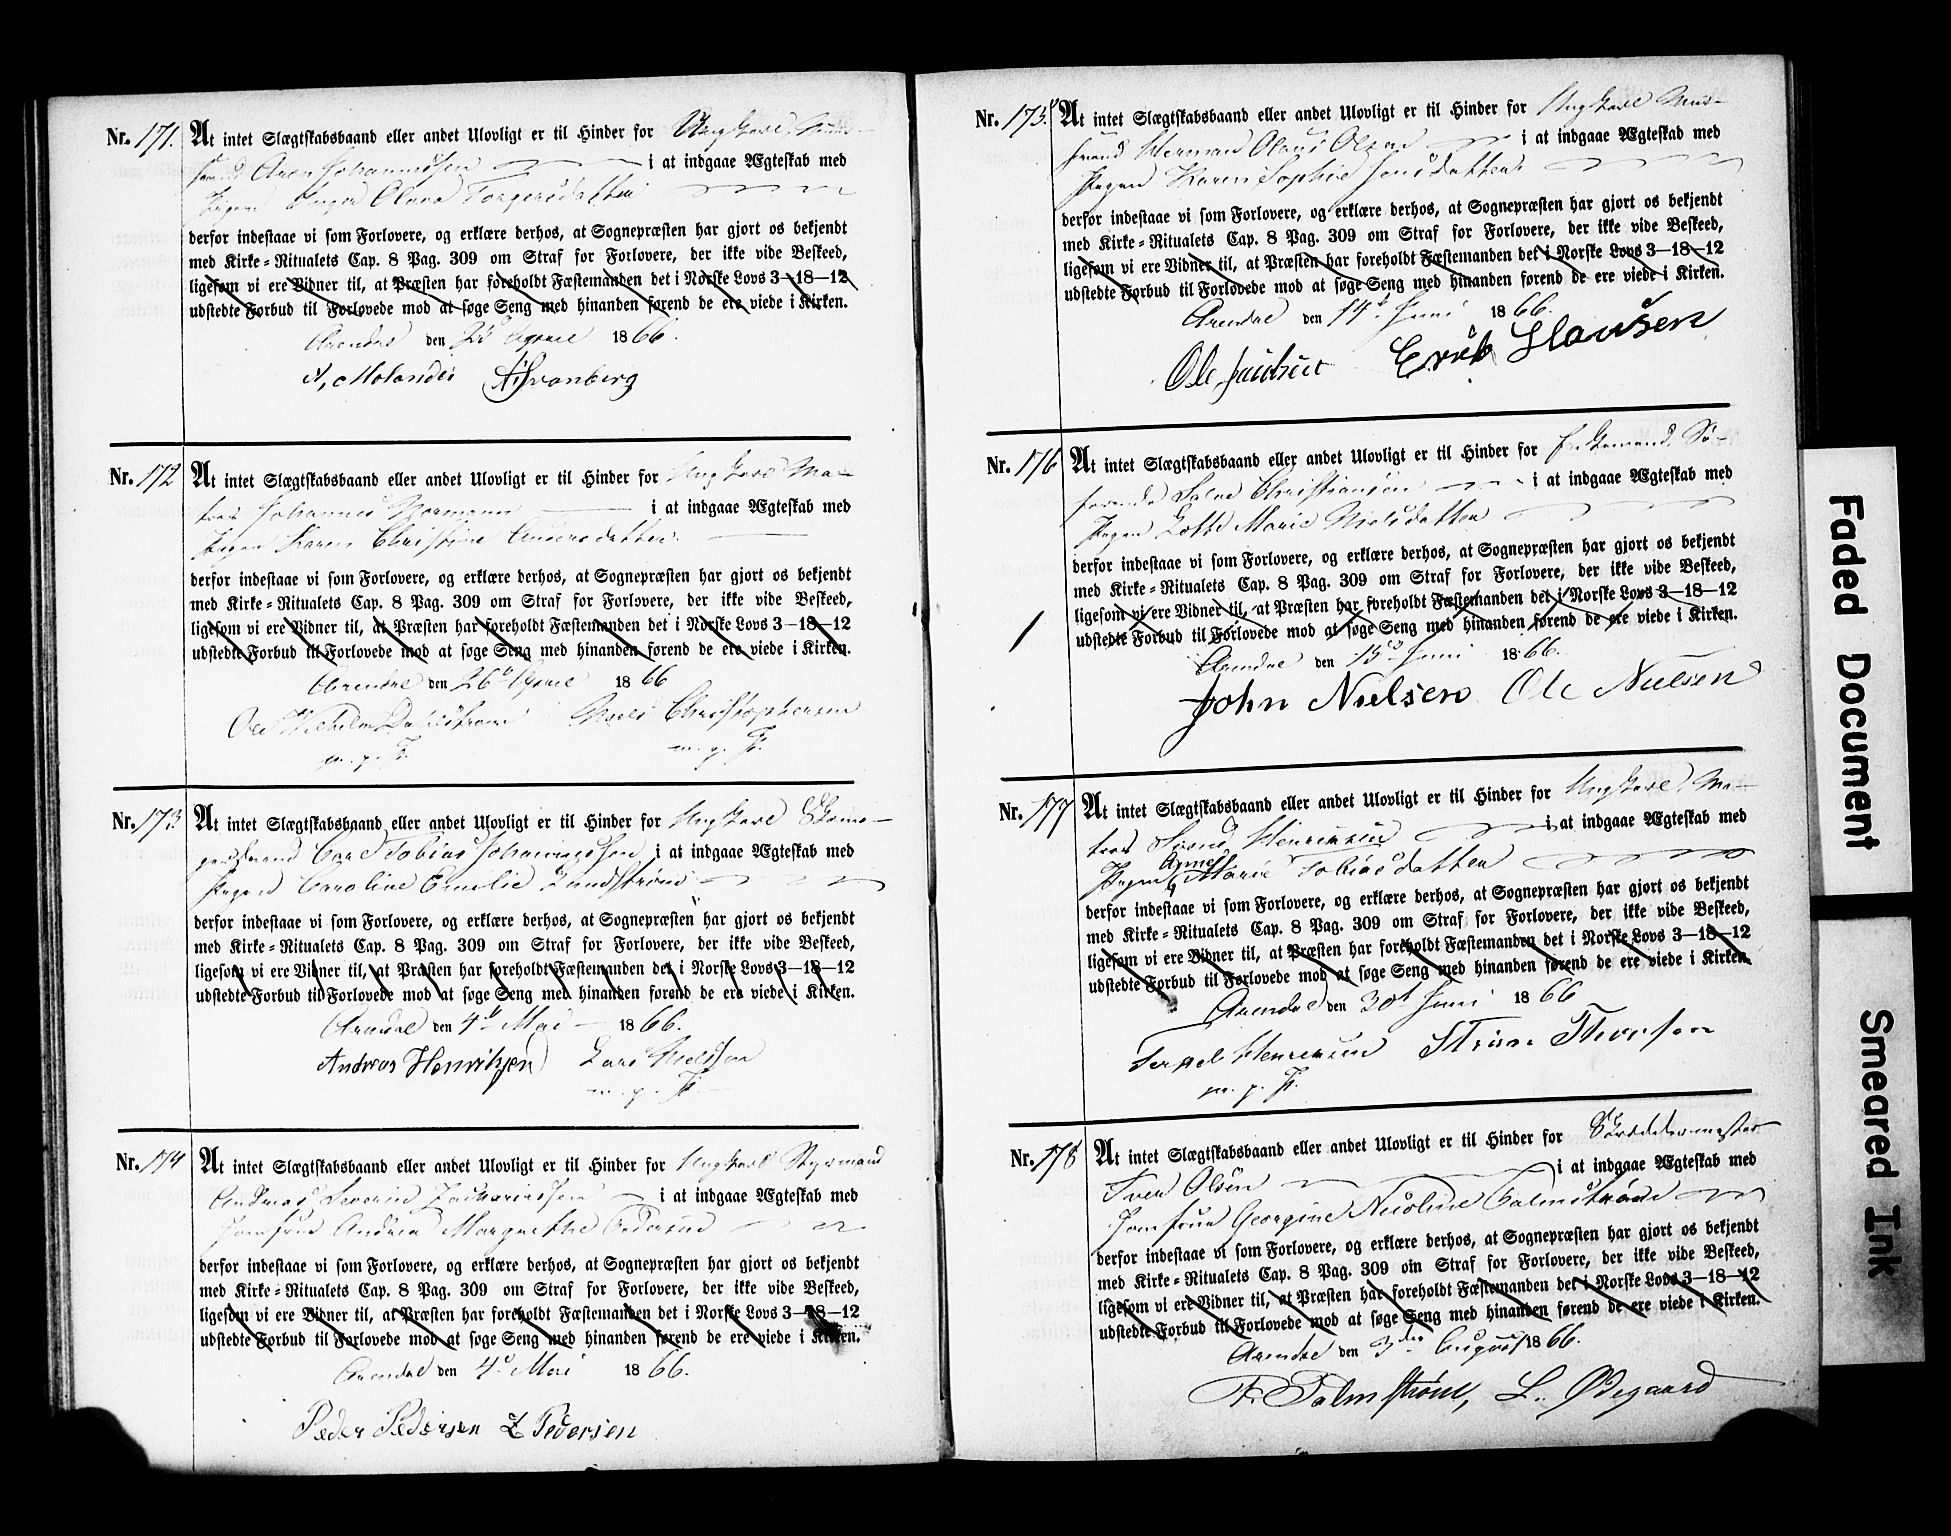 Nr. 171. At intet Slægtskabsbaand eller andet Ulovligt er til Hinder for Ungkarl
Aren Johannessen i at indgaae Ægteskab med
Pigen Inger Olava Torgersdatter
derfor indestaae vi som Forlovere, og erklære derhos, at Sognepræsten har gjort os bekjendt
med Kirke-Ritualets Cap. 8 Pag. 309 om Straf for Forlovere, der ikke vide Beskeed,
ligesom vi ere Vidner til, at Præsten har foreholdt Fæstemanden det i Norske Lovs 3—18—12
udstedte Forbud til Forlovede mod at søge Seng med hinanden førend de ere viede i Kirken.
Arendal den April 1866.
Nr. 172 At intet Slægtskabsbaand eller andet Ulovligt er til Hinder for Ungkarl Ma-
tros Johannes Normann i at indgaae Ægteskab med
Pigen Karen Christine Andersdatter.
derfor indestaae vi som Forlovere, og erklære derhos, at Sognepræsten har gjort os bekjendt
med Kirke-Ritualets Cap. 8 Pag. 309 om Straf for Forlovere, der ikke vide Beskeed,
ligesom vi ere Vidner til, at Præsten har foreholdt Fæstemanden det i Norske Lovs 3—18—12
udstedte Forbud til Forlovede mod at søge Seng med hinanden førend de ere viede i Kirken.
Arendal den 26d April 1866
Wilhelm Niels Christophersen
m. p. F. m. p. F.
Nr. 173 At intet Slægtskabsbaand eller andet Ulovligt er til Hinder for Ungkarl
Carl Tobias Johannessen i at indgaae Ægteskab med
Pigen Caroline Emilie Lundstrøm
derfor indestaae vi som Forlovere, og erklære derhos, at Sognepræsten har gjort os bekjendt
med Kirke-Ritualets Cap. 8 Pag. 309 om Straf for Forlovere, der ikke vide Beskeed,
ligesom vi ere Vidner til, at Præsten har foreholdt Fæstemanden det i Norske Lovs 3—18—12
udstedte Forbud til Forlovede mod at søge Seng med hinanden førend de ere viede i Kirken.
Arendal den 4d Mai 1866.
Andreas Henriksen Lars Nielsen
m. p. F.
Nr. 174 At intet Slægtskabsbaand eller andet Ulovligt er til Hinder for Ungkarl Styrmand
Andreas Severin Zachariassen i at indgaae Ægteskab med
Jomfrue Andrea Margrethe Pedersen
derfor indestaae vi som Forlovere, og erklære derhos, at Sognepræsten har gjort os bekjendt
med Kirke-Ritualets Cap. 8 Pag. 309 om Straf for Forlovere, der ikke vide Beskeed,
ligesom vi ere Vidner til, at Præsten har foreholdt Fæstemanden det i Norske Lovs 3—18—12
udstedte Forbud til Forlovede mod at søge Seng med hinanden førend de ere viede i Kirken.
Arendal den 4d Mai 1866.
Peder Pedersen Z Pedersen
Nr. 175. At intet Slægtskabsbaand eller andet Ulovligt er til Hinder for Ungkarl
Herman Olaus Olsen i at indgaae Ægteskab med
Pigen Karen Sophie Jensdatter
derfor indestaae vi som Forlovere, og erklære derhos, at Sognepræsten har gjort os bekjendt
med Kirke-Ritualets Cap. 8 Pag. 309 om Straf for Forlovere, der ikke vide Beskeed,
ligesom vi ere Vidner til, at Præsten har foreholdt Fæstemanden det i Norske Lovs 3—18—12
udstedte Forbud til Forlovede mod at søge Seng med hinanden førend de ere viede i Kirken.
Arendal den 14d Juni 1866.
Ole Erik Hansen
Nr. 176 At intet Slægtskabsbaand eller andet Ulovligt er til Hinder for Enkemand Sø-
farende Salve Christiansen i at indgaae Ægteskab med
Pigen Lotte Marie Nielsdatter
derfor indestaae vi som Forlovere, og erklære derhos, at Sognepræsten har gjort os bekjendt
med Kirke-Ritualets Cap. 8 Pag. 309 om Straf for Forlovere, der ikke vide Beskeed,
ligesom vi ere Vidner til, at Præsten har foreholdt Fæstemanden det i Norske Lovs 3—18—12
udstedte Forbud til Forlovede mod at søge Seng med hinanden førend de ere viede i Kirken.
Arendal den 15d Juni 1866.
John Nielsen Ole Nielsen
Nr. 177 At intet Slægtskabsbaand eller andet Ulovligt er til Hinder for Ungkarl Ma-
tros Svend Henriksen i at indgaae Ægteskab med
Pigen Marie Tobiasdatter
derfor indestaae vi som Forlovere, og erklære derhos, at Sognepræsten har gjort os bekjendt
med Kirke-Ritualets Cap. 8 Pag. 309 om Straf for Forlovere, der ikke vide Beskeed,
ligesom vi ere Vidner til, at Præsten har foreholdt Fæstemanden det i Norske Lovs 3—18—12
udstedte Forbud til Forlovede mod at søge Seng med hinanden førend de ere viede i Kirken.
Arendal den 30d Juni 1866
Terkel Henriksen
m. p. F.
Nr. 178 At intet Slægtskabsbaand eller andet Ulovligt er til Hinder for Skræddermester
Sven Olsen i at indgaae Ægteskab med
Jomfrue Georgine Nicoline Palmstrøm
derfor indestaae vi som Forlovere, og erklære derhos, at Sognepræsten har gjort os bekjendt
med Kirke-Ritualets Cap. 8 Pag. 309 om Straf for Forlovere, der ikke vide Beskeed,
ligesom vi ere Vidner til, at Præsten har foreholdt Fæstemanden det i Norske Lovs 3—18—12
udstedte Forbud til Forlovede mod at søge Seng med hinanden førend de ere viede i Kirken.
Arendal den 3die August 1866.
Palmstrøm, L. Ødegaard
Faded Document
Smeared Ink